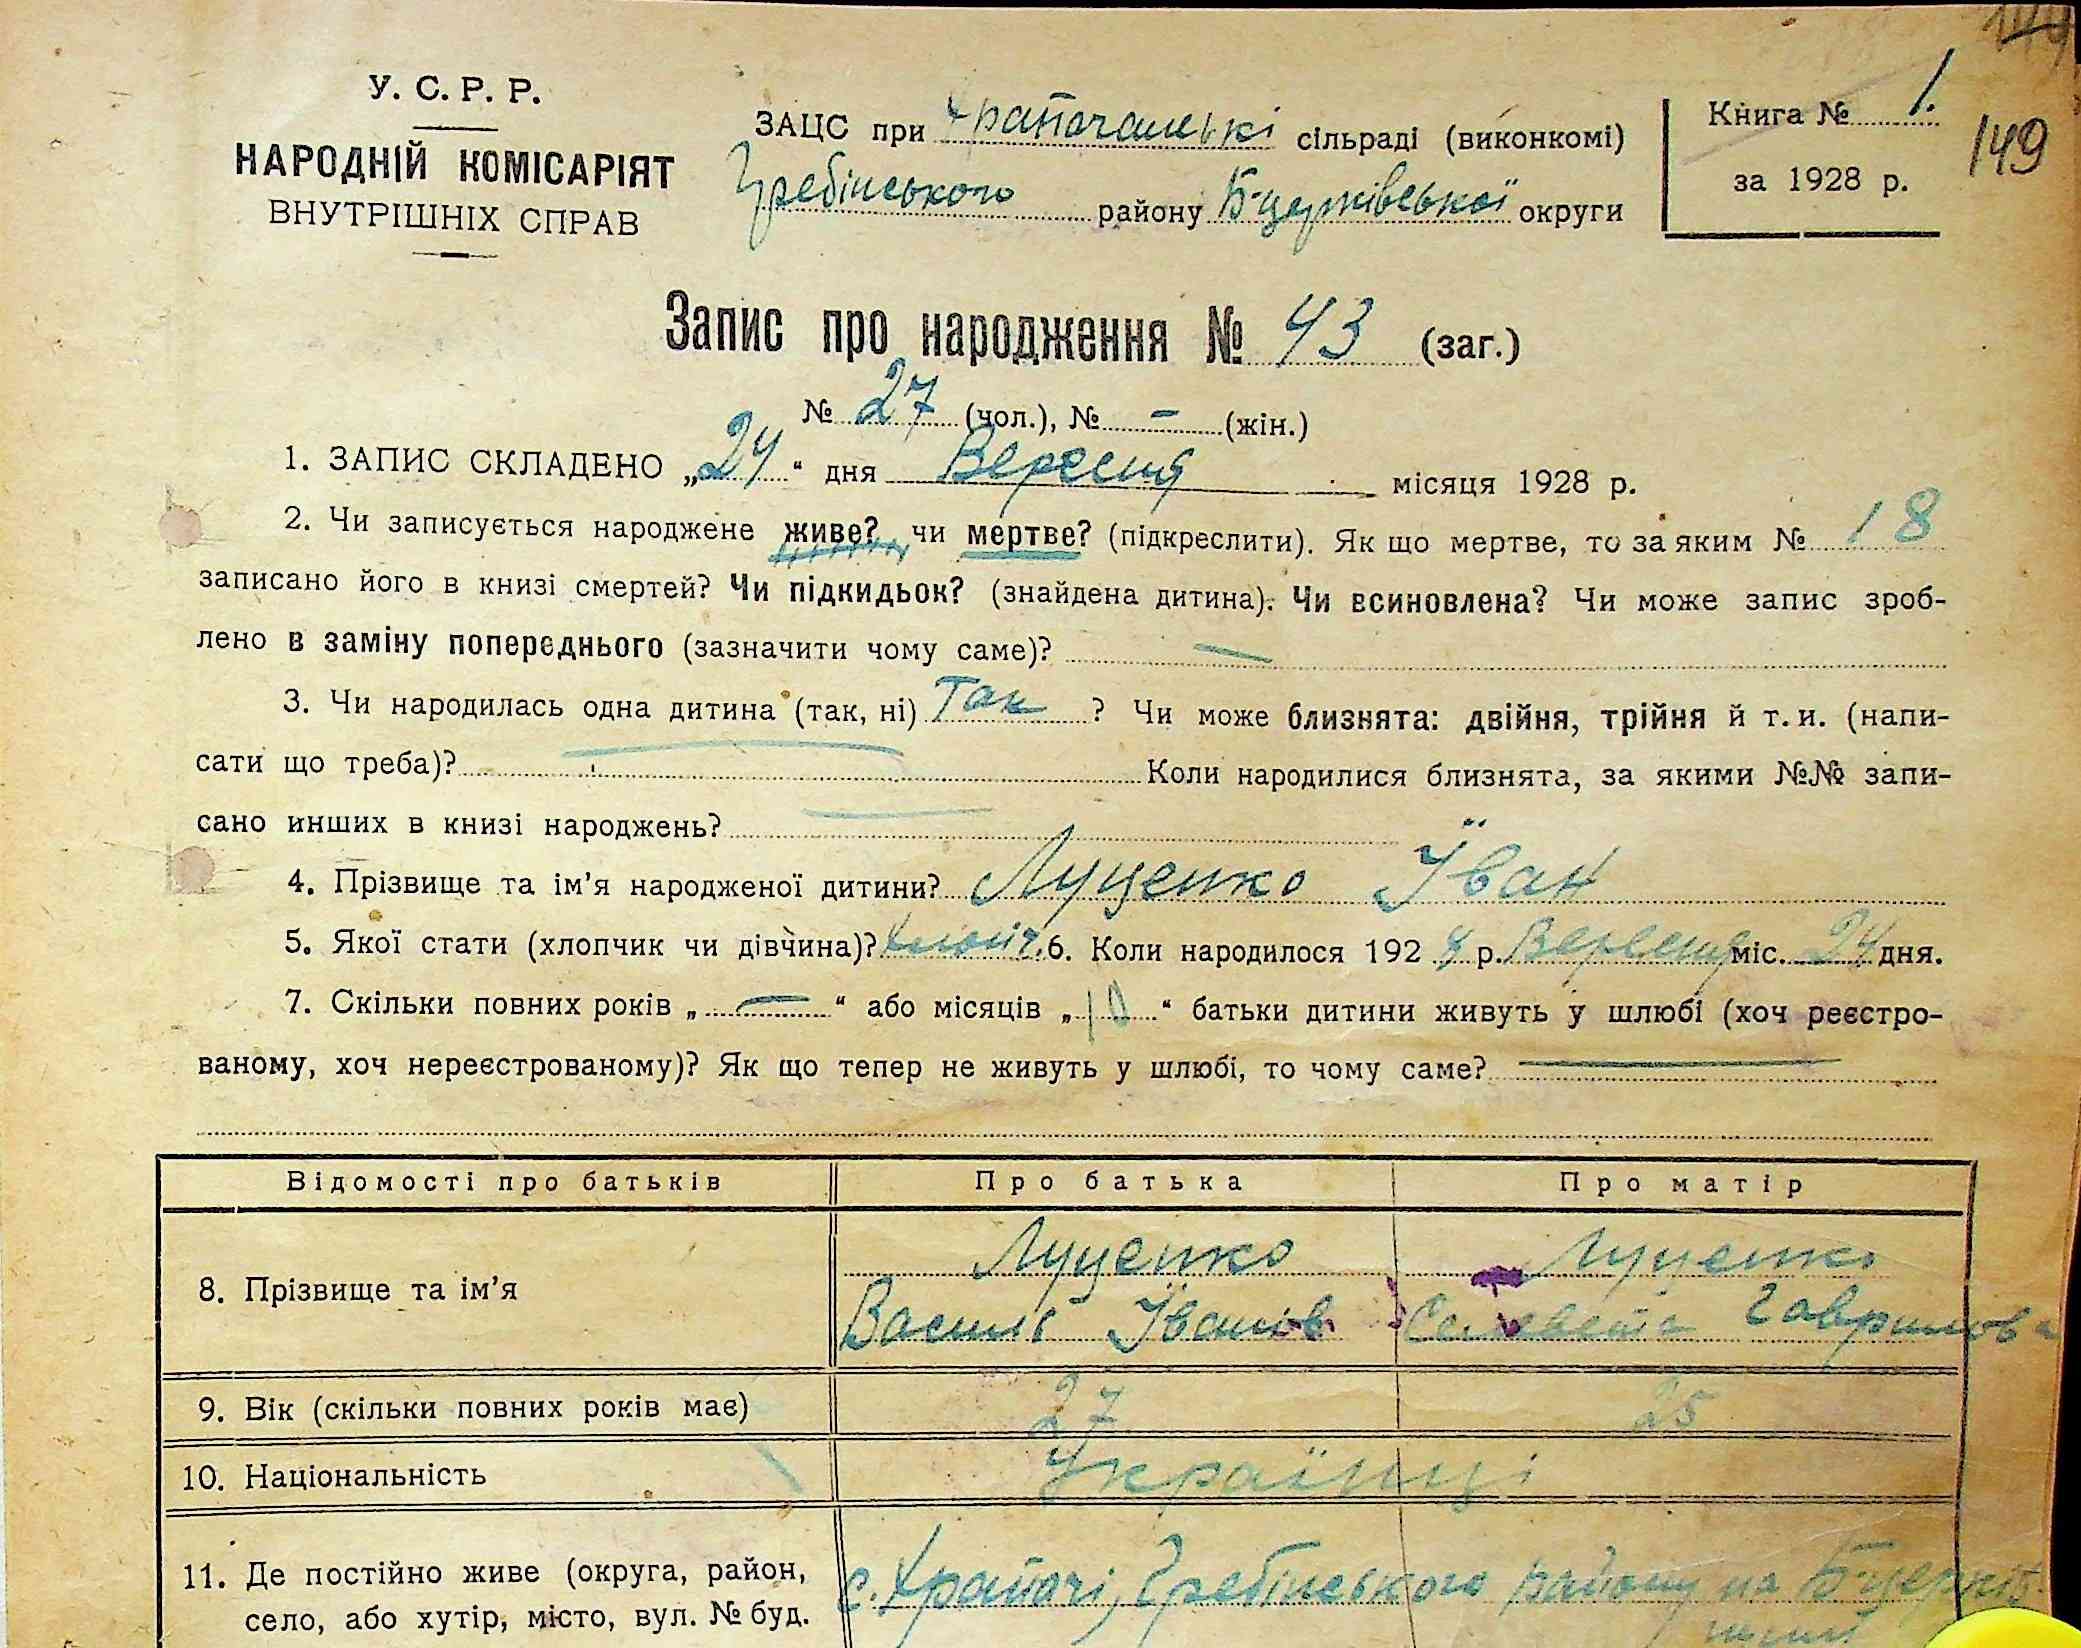 149
У. С. Р. Р.
НАРОДНІЙ КОМІСАРІЯТ
ВНУТРІШНІХ СПРАВ
ЗАЦС при Храпачанські сільраді (виконкомі)
Гребінського району Б-церківської округи
Книга № 1.
за 1928 р.
149
Запис про народження № 43 (заг.)
№ 27 (чол.), № – (жін.)
1. ЗАПИС СКЛАДЕНО „24“ дня Вересня місяця 1928 р.
2. Чи записується народжене живе? чи мертве? (підкреслити). Як що мертве, то за яким № 18
записано його в книзі смертей? Чи підкидьок? (знайдена дитина). Чи всиновлена? Чи може запис зроб-
лено в заміну попереднього (зазначити чому саме)? —
3. Чи народилась одна дитина (так, ні) Так ? Чи може близнята: двійня, трійня й т. и. (напи-
сати що треба)? — Коли народилися близнята, за якими №№ запи-
сано инших в книзі народжень? —
4. Прізвище та ім’я народженої дитини? Луценко Їван
5. Якої стати (хлопчик чи дівчина)? хлопч. 6. Коли народилося 192 8 р. Вересня міс. 24 дня.
7. Скільки повних років „—“ або місяців „10“ батьки дитини живуть у шлюбі (хоч реєстро-
ваному, хоч нереєстрованому)? Як що тепер не живуть у шлюбі, то чому саме? —
Відомості про батьків Про батька Про матір
8. Прізвище та ім’я Луценко Луценко
Василь Їванов Гаврилова
9. Вік (скільки повних років має) 27 25
10. Національність Українці
11. Де постійно живе (округа, район, с. Храпачі, Гребінського району на Б-церків-
село, або хутір, місто, вул. № буд. щині